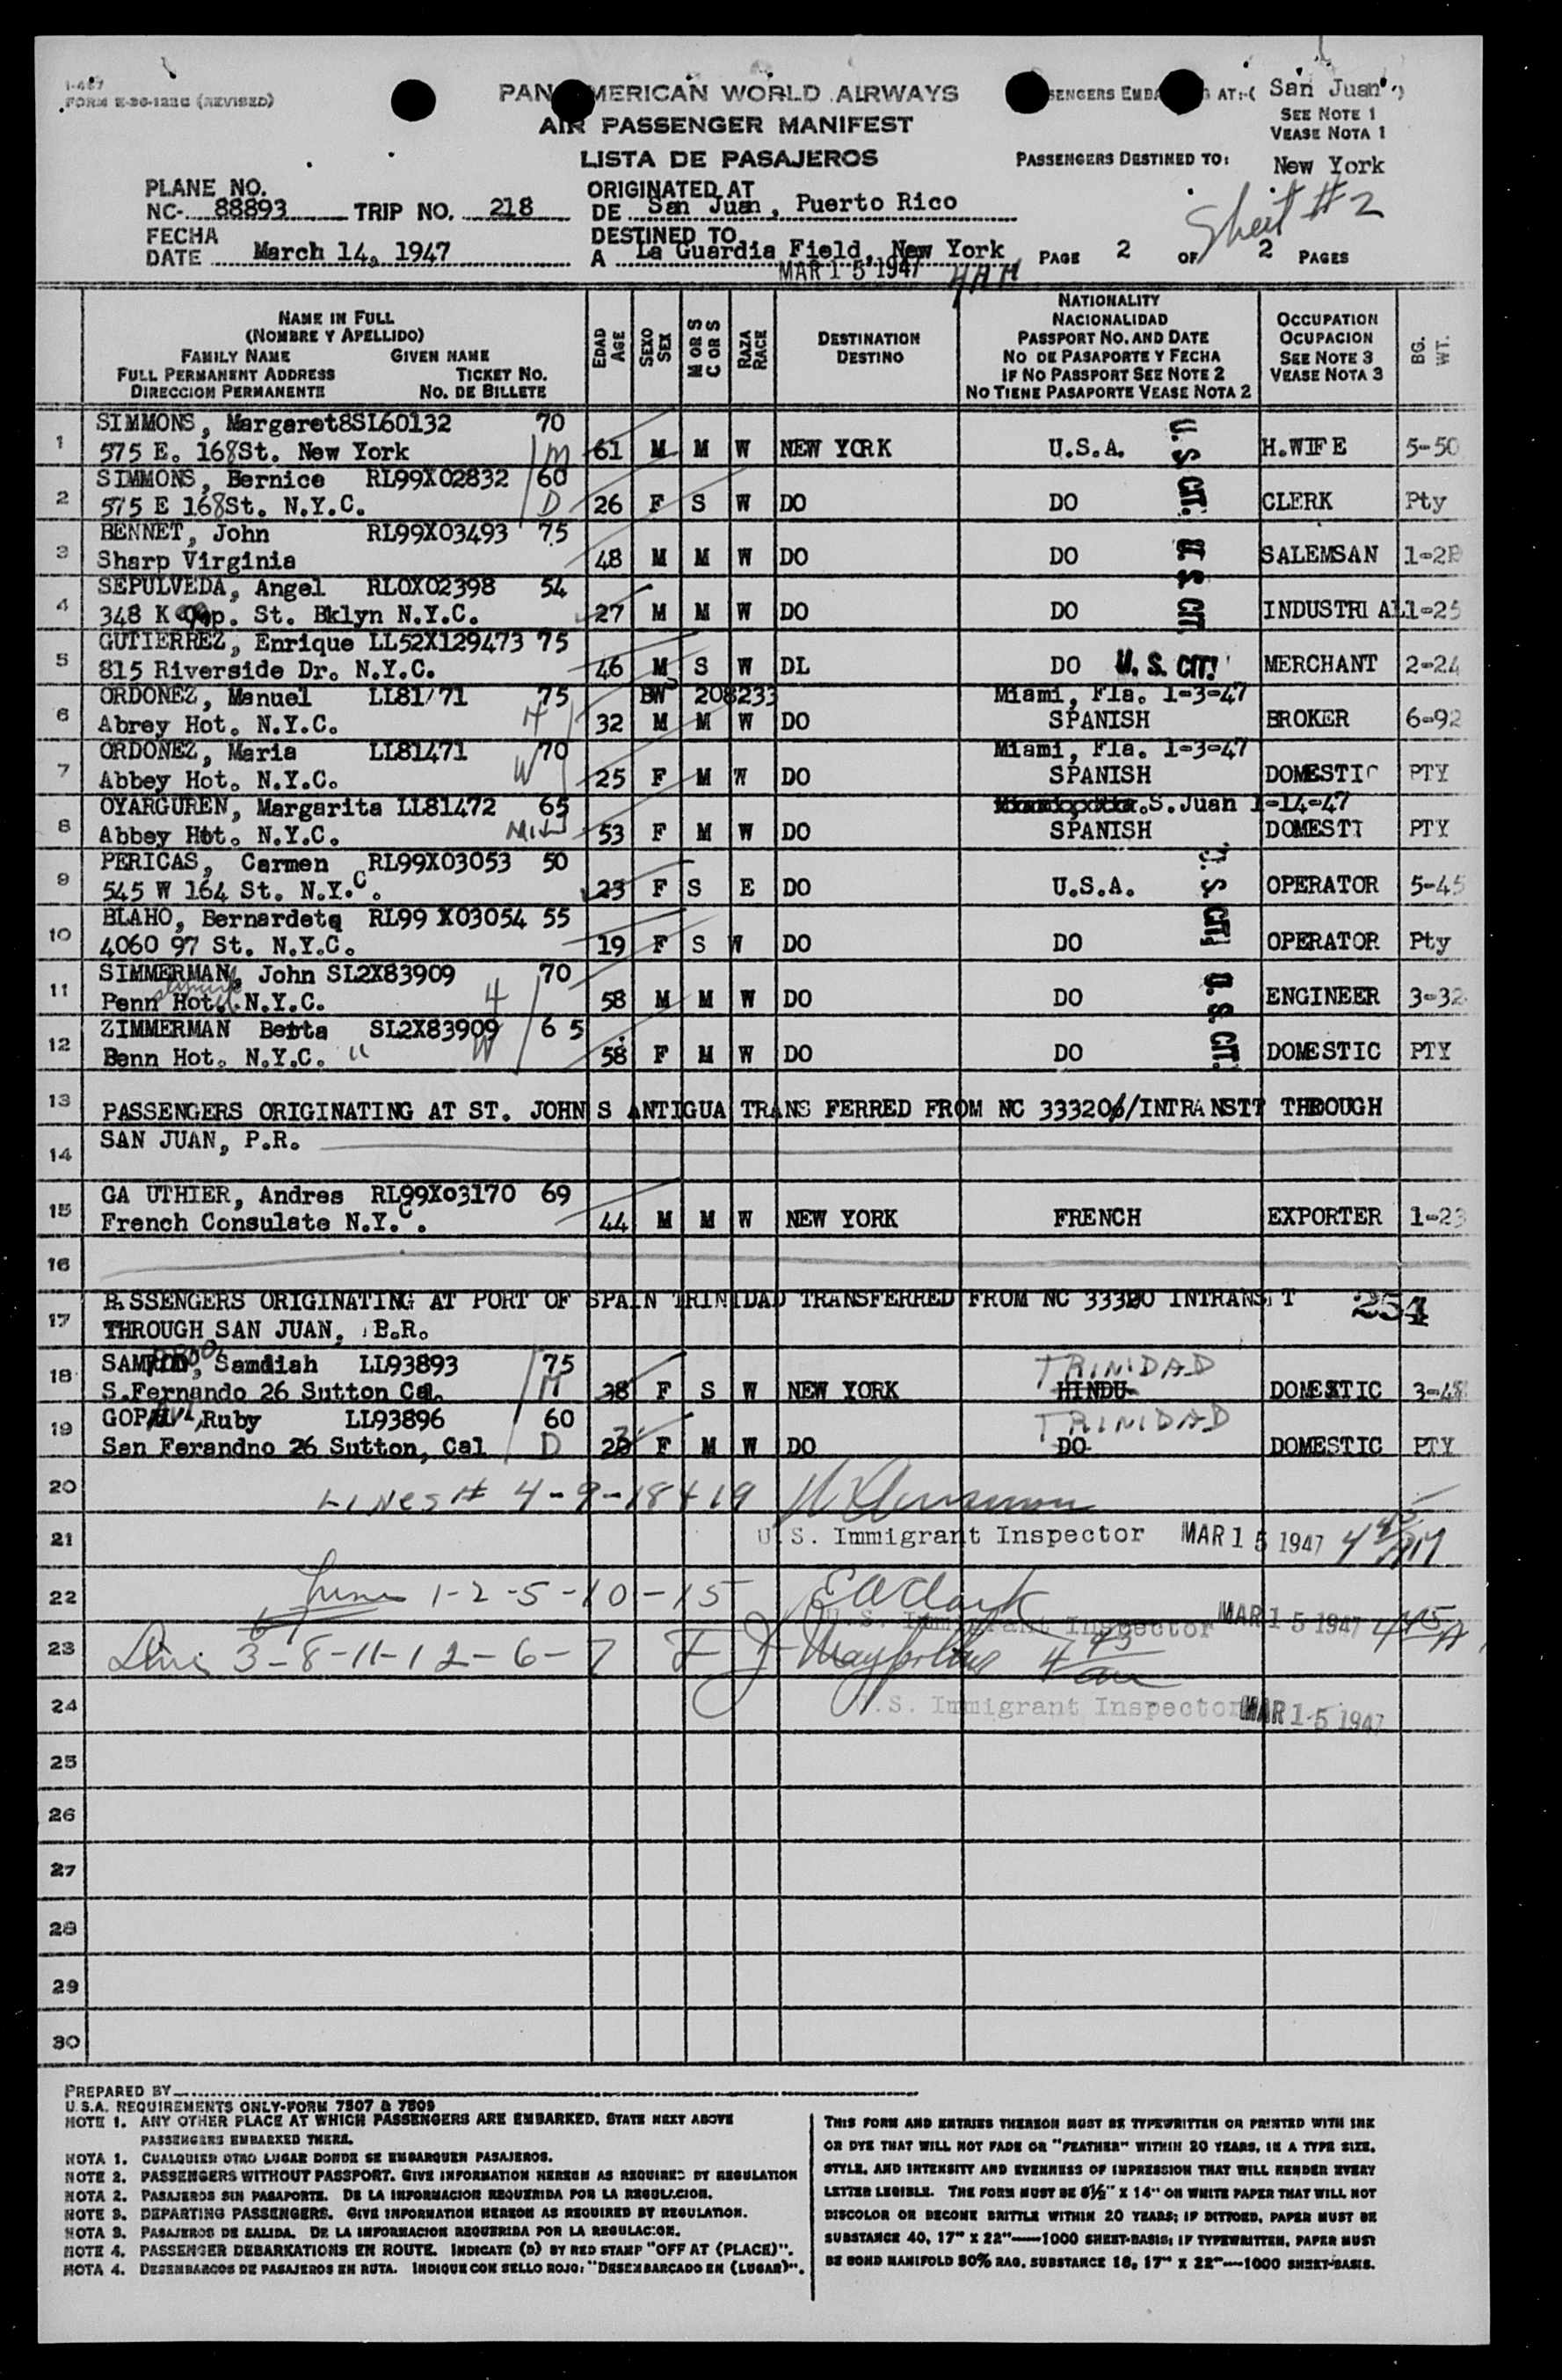 I-467
FORM E-36-122C (REVISED)
PAN AMERICAN WORLD AIRWAYS
AIR PASSENGER MANIFEST
LISTA DE PASAJEROS
SENGERS EMBA AT:-( San Juan )
SEE NOTE 1
VEASE NOTA 1
PASSENGERS DESTINED TO: New York
Sheet #2
PLANE NO.
NC- 88893 TRIP NO. 218
ORIGINATED AT
DE San Juan, Puerto Rico
FECHA
DATE March 14, 1947
DESTINED TO
A La Guardia Field, New York
PAGE 2 OF 2 PAGES
MAR 15 1947
NAME IN FULL
(NOMBRE Y APELLIDO)
FAMILY NAME GIVEN NAME
FULL PERMANENT ADDRESS TICKET NO.
DIRECCION PERMANENTE NO. DE BILLETE
EDAD AGE
SEXO SEX
M OR S C OR S
RAZA RACE
DESTINATION
DESTINO
NATIONALITY
NACIONALIDAD
PASSPORT NO. AND DATE
NO DE PASAPORTE Y FECHA
IF NO PASSPORT SEE NOTE 2
NO TIENE PASAPORTE VEASE NOTA 2
OCCUPATION
OCUPACION
SEE NOTE 3
VEASE NOTA 3
BG. WT.
1 SIMMONS, Margaret8SL60132 70
575 E. 168St. New York M 61 M M W NEW YORK U.S.A. U.S CIT. H.WIFE 5-50
2 SIMMONS, Bernice RL99X02832 60
575 E 168St. N.Y.C. D 26 F S W DO DO CLERK Pty
3 BENNET, John RL99X03493 75
Sharp Virginia 48 M M W DO DO U. S. CIT SALEMSAN 1-28
4 SEPULVEDA, Angel RLOX02398 54
348 K p. St. Bklyn N.Y.C. 27 M M W DO DO INDUSTRI AL 1-25
5 GUTIERREZ, Enrique LL52X129473 75
815 Riverside Dr. N.Y.C. 46 M S W DL DO U. S. CIT! MERCHANT 2-24
6 ORDONEZ, Manuel LL81/71 75 BW 208233 Miami, Fla. 1-3-47
Abrey Hot. N.Y.C. H 32 M M W DO SPANISH BROKER 6-92
7 ORDONEZ, Maria LL81471 70 Miami, Fla. 1-3-47
Abbey Hot. N.Y.C. W 25 F M W DO SPANISH DOMESTIC PTY
8 OYARGUREN, Margarita LL81472 65 S.Juan 1-14-47
Abbey Hot. N.Y.C. 53 F M W DO SPANISH DOMESTI PTY
9 PERICAS, Carmen RL99X03053 50
545 W 164 St. N.Y.C. 23 F S E DO U.S.A. U. S. CIT OPERATOR 5-45
10 BLAHO, Bernardeta RL99 X03054 55
4060 97 St. N.Y.C. 19 F S W DO DO OPERATOR Pty
11 SIMMERMAN, John SL2X83909 70
Penn Hot. N.Y.C. H 58 M M W DO DO U. S. CIT. ENGINEER 3-32
12 ZIMMERMAN Betta SL2X83909 6 5
Benn Hot. N.Y.C. " W 58 F M W DO DO DOMESTIC PTY
13 PASSENGERS ORIGINATING AT ST. JOHN S ANTIGUA TRANS FERRED FROM NC 33320/INTRANSIT THROUGH
14 SAN JUAN, P.R.
15 GA UTHIER, Andres RL99X03170 69
French Consulate N.Y.C. 44 M M W NEW YORK FRENCH EXPORTER 1-23
16
17 PASSENGERS ORIGINATING AT PORT OF SPAIN TRINIDAD TRANSFERRED FROM NC 33320 INTRANSIT 254
THROUGH SAN JUAN, P.R.
18 Samdiah LL93893 75 TRINIDAD
S.Fernando 26 Sutton Cal. 38 F S W NEW YORK HINDU DOMESTIC 3-48
19 Ruby LL93896 60 TRINIDAD
San Ferandno 26 Sutton, Cal D F M W DO DO DOMESTIC PTY
20 LINES # 4-9-18+19
21 U.S. Immigrant Inspector MAR 15 1947 4 45 AM
22 Lines 1-2-5-10-15 E A Clark
U.S. Immigrant Inspector MAR 15 1947 4 45 A
23 Lines 3-8-11-12-6-7 4 45 am
24 U.S. Immigrant Inspector MAR 15 1947
25
26
27
28
29
30
PREPARED BY
U.S.A. REQUIREMENTS ONLY-FORM 7507 & 7509
NOTE 1. ANY OTHER PLACE AT WHICH PASSENGERS ARE EMBARKED, STATE NEXT ABOVE
PASSENGERS EMBARKED THERE.
NOTA 1. CUALQUIER OTRO LUGAR DONDE SE EMBARQUEN PASAJEROS.
NOTE 2. PASSENGERS WITHOUT PASSPORT. GIVE INFORMATION HEREON AS REQUIRED BY REGULATION
NOTA 2. PASAJEROS SIN PASAPORTE. DE LA INFORMACION REQUERIDA POR LA REGULACION.
NOTE 3. DEPARTING PASSENGERS. GIVE INFORMATION HEREON AS REQUIRED BY REGULATION.
NOTA 3. PASAJEROS DE SALIDA. DE LA INFORMACION REQUERIDA POR LA REGULACION.
NOTE 4. PASSENGER DEBARKATIONS EN ROUTE. INDICATE (D) BY RED STAMP "OFF AT (PLACE)".
NOTA 4. DESEMBARCOS DE PASAJEROS EN RUTA. INDIQUE CON SELLO ROJO: "DESEMBARCADO EN (LUGAR)".
THIS FORM AND ENTRIES THEREON MUST BE TYPEWRITTEN OR PRINTED WITH INK
OR DYE THAT WILL NOT FADE OR "FEATHER" WITHIN 20 YEARS, IN A TYPE SIZE,
STYLE, AND INTENSITY AND EVENNESS OF IMPRESSION THAT WILL RENDER EVERY
LETTER LEGIBLE. THE FORM MUST BE 8½" X 14" ON WHITE PAPER THAT WILL NOT
DISCOLOR OR BECOME BRITTLE WITHIN 20 YEARS; IF DITTOED, PAPER MUST BE
SUBSTANCE 40, 17" X 22"—1000 SHEET-BASIS; IF TYPEWRITTEN, PAPER MUST
BE BOND MANIFOLD 50% RAG, SUBSTANCE 16, 17" X 22"—1000 SHEET-BASIS.